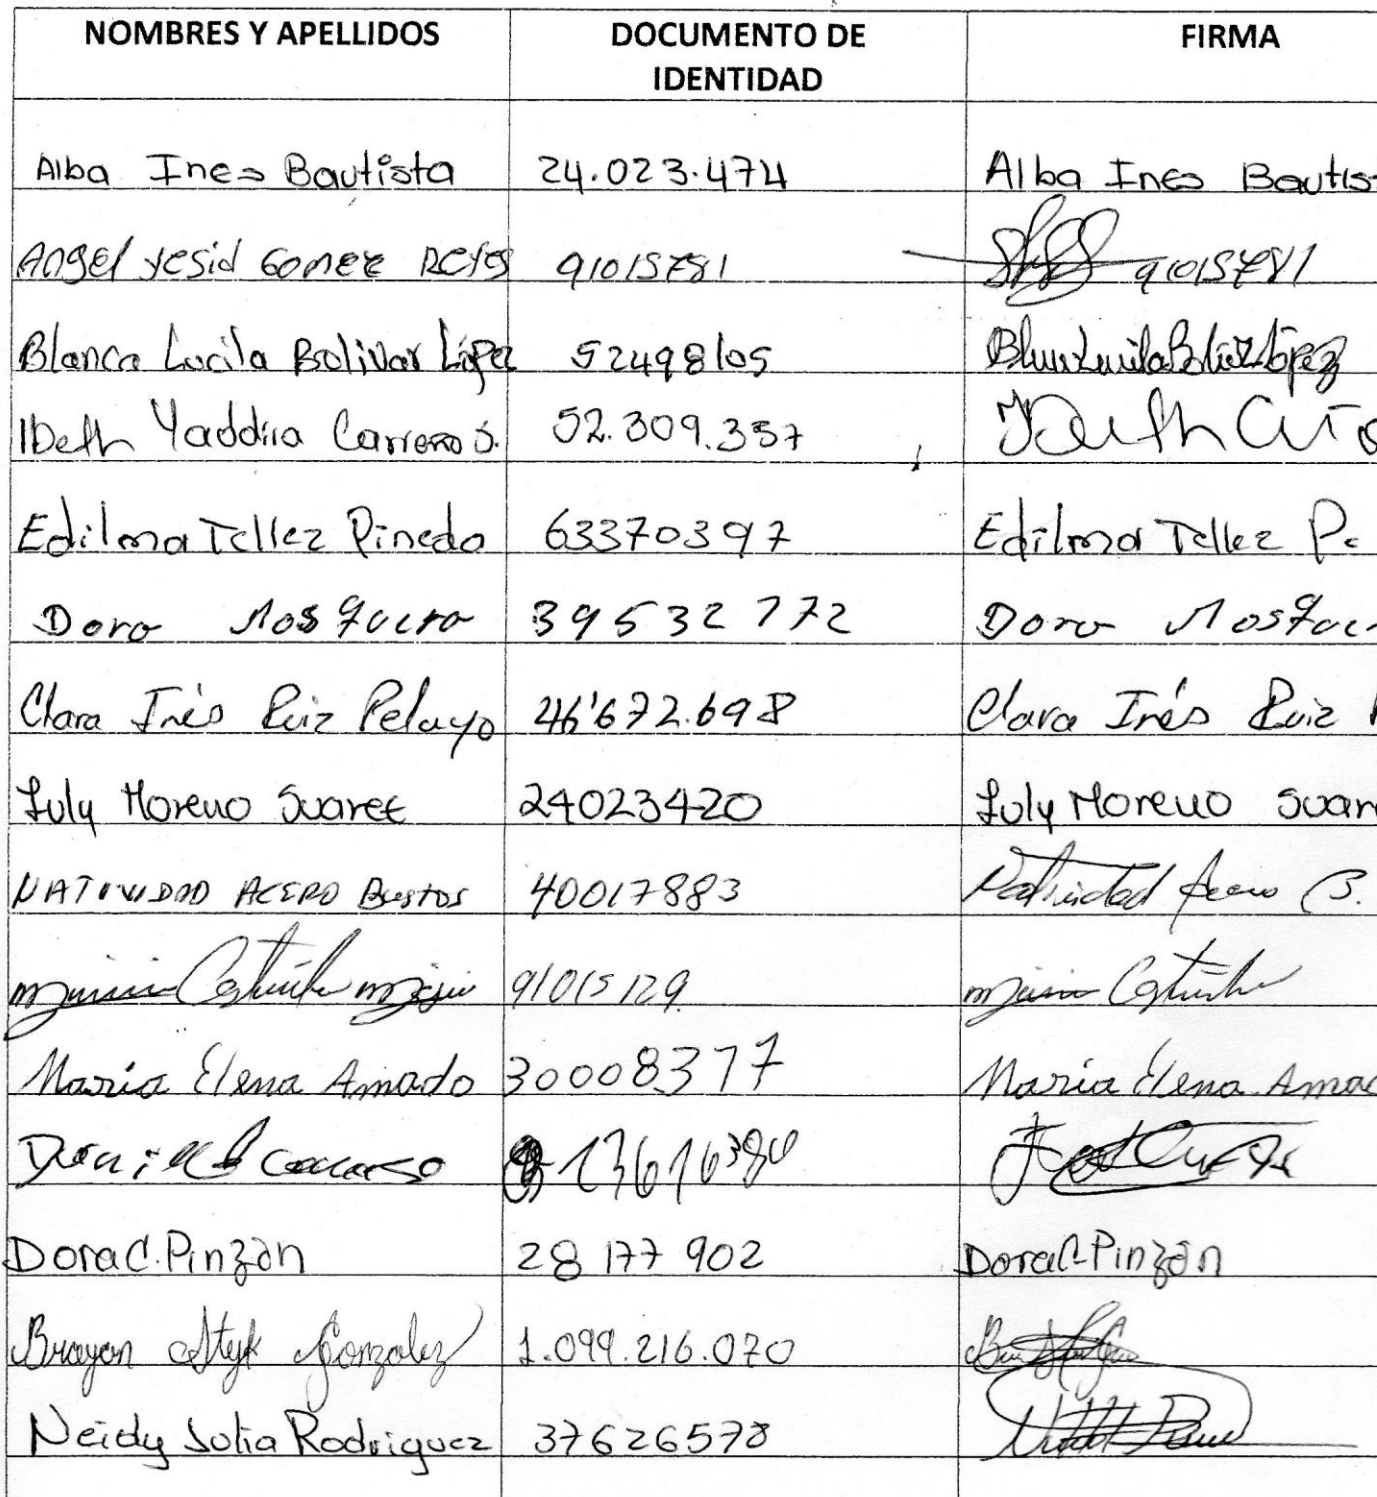 NOMBRES Y APELLIDOS DOCUMENTO DE IDENTIDAD FIRMA
Alba Ines Bautista 24.023.474 Alba Ines Bautis
Angel yesid Gomez Reyes 91015781 91015781
Blanca Lucila Bolivar López 52498105 Lucila López
Ibeth Yaddira Carreño S. 52.309.357 Ibeth
Edilma Tellez Pinedo 63370397 Edilma Tellez P.
Dora Mosquera 39532772 Dora Mosque
Clara Inés Ruiz Pelayo 46'672.698 Clara Inés Ruiz
Luly Moreno Suarez 24023420 Luly Moreno Suar
NATIVIDAD ACERO Bustos 40017883 Natividad Acero B.
91015129
María Elena Amado 30008377 María Elena Amad
Dora C. Pinzón 28 177 902 Dora C. Pinzón
Brayan Styk Gonzalez 1.099.216.070
Neidy Julia Rodriguez 37626578